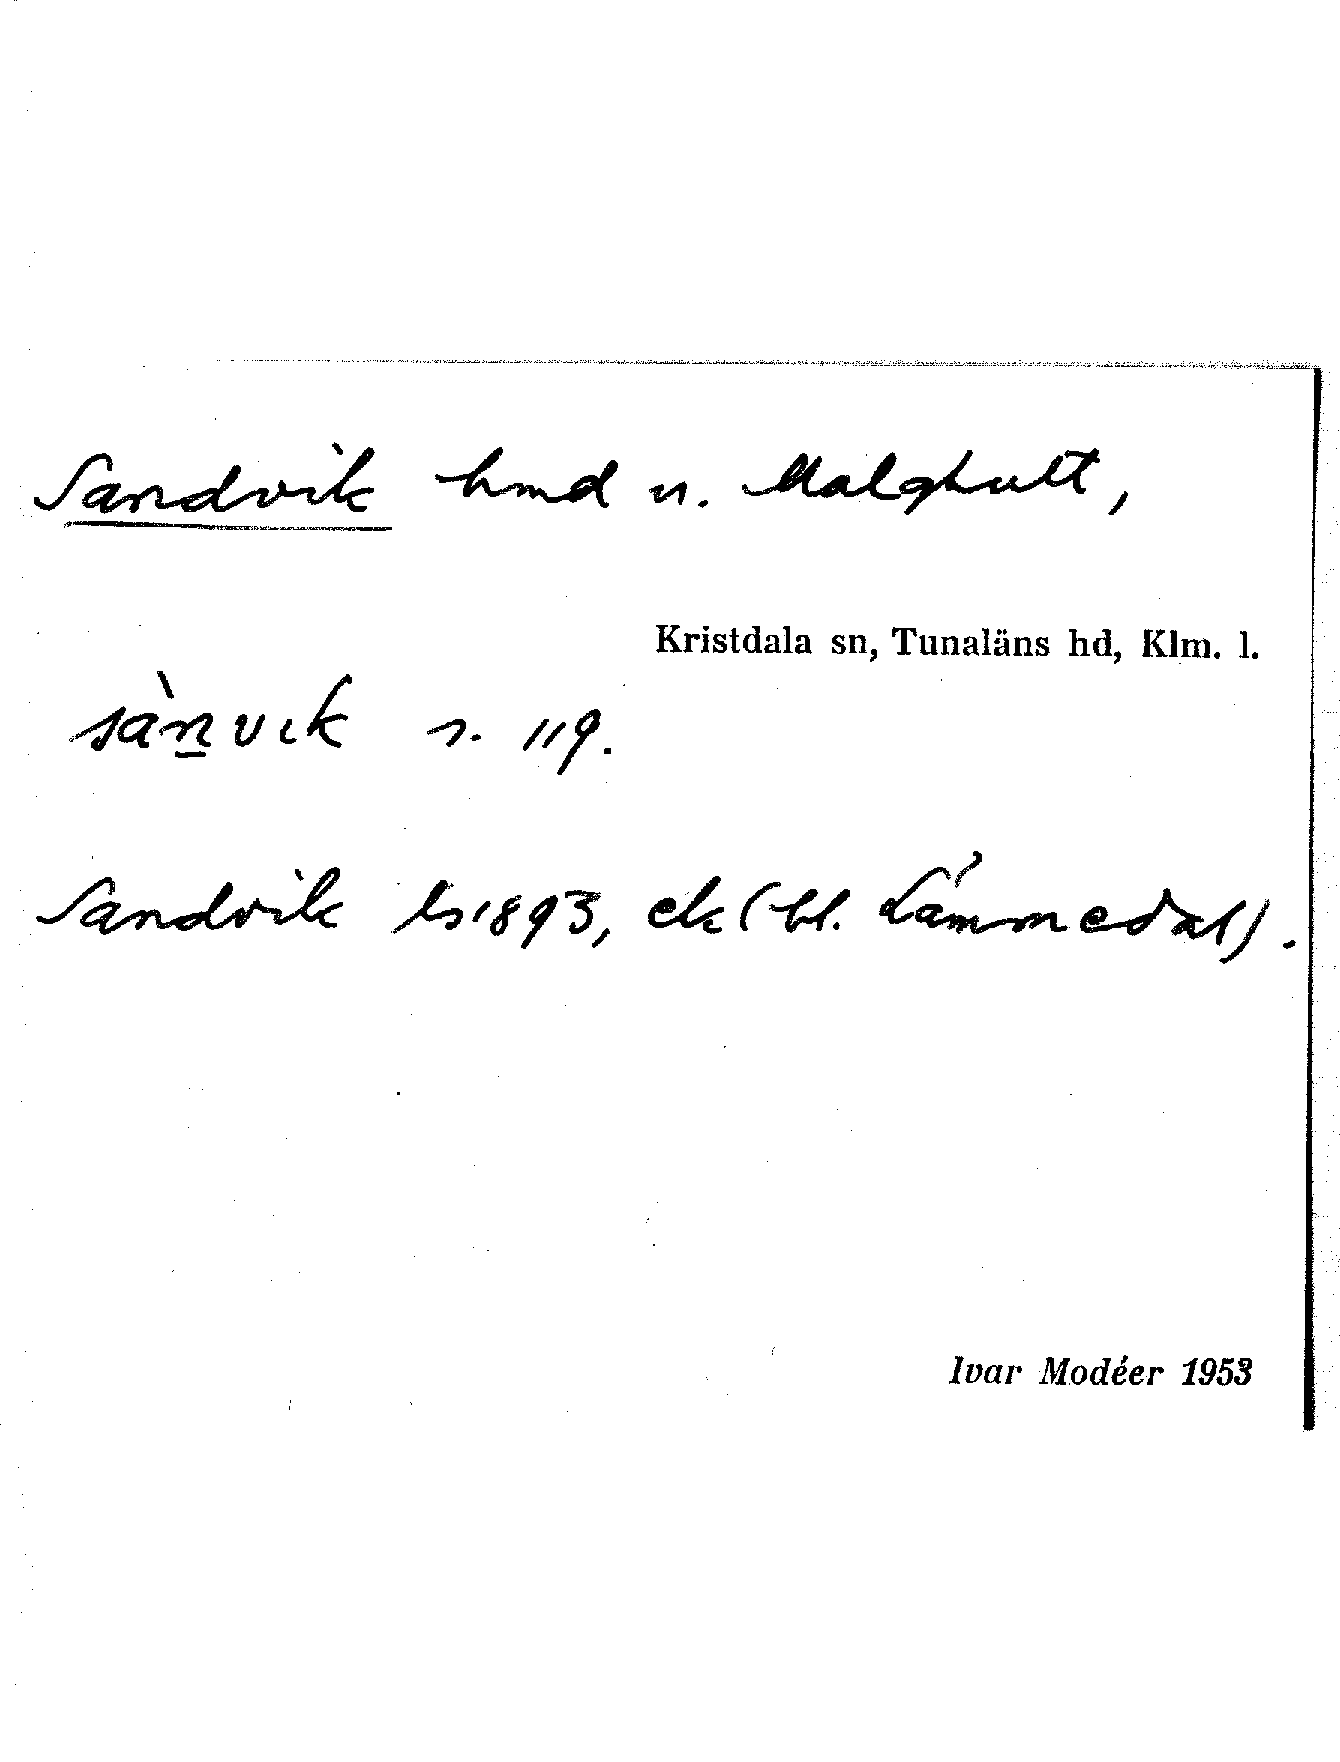 Sandvik hmd u. Malghult,
Kristdala sn, Tunaläns hd, Klm. l.
sàn̲vɩk s. 119.
Sandvik ls 1893, ek (bl. Lámmedal).
Ivar Modéer 1953